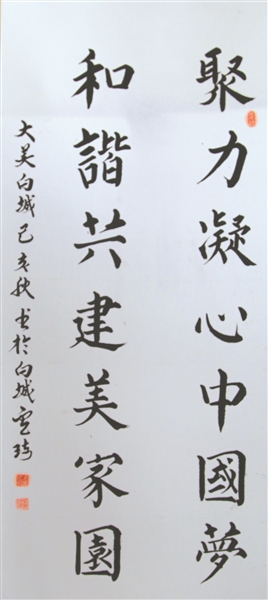 聚力凝心中國夢
和諧共建美家園
大美白城己亥秋书於白城雲琦